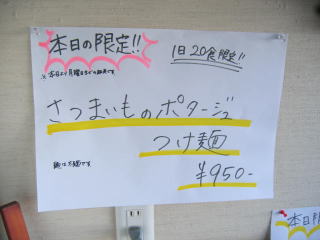 本日の限定!!
1日20食限定!!
※本日より月曜日までの販売です
さつまいものポタージュ
つけ麺
麺は太麺です
¥950-
本日の